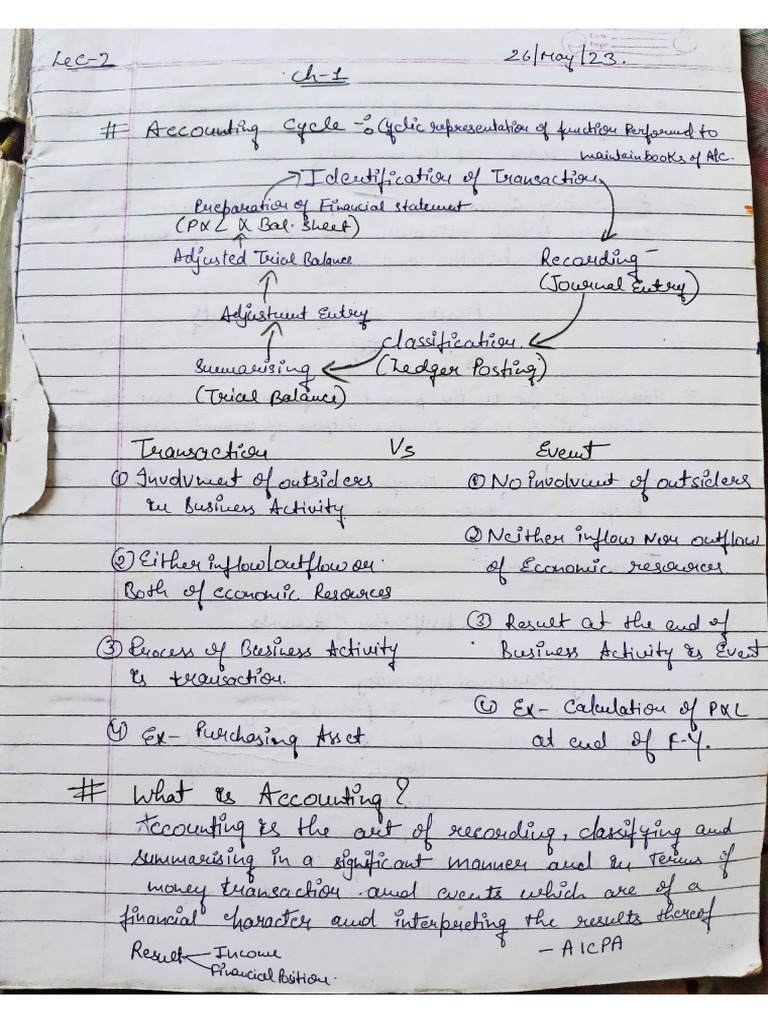 Lec-2
26/May/23.
Ch-1
# Accounting Cycle :- Cyclic representation of function Performed to
maintain books of A/C.
Identification of Transaction
Preparation of Financial statement
(P&L & Bal. Sheet)
Adjusted Trial Balance
Recording
(Journal Entry)
Adjustment Entry
Classification.
(Ledger Posting)
Summarising
(Trial Balance)
Transaction Vs Event
① Involvment of outsiders
in Business Activity
① No involvment of outsiders
② Neither inflow Nor outflow
of Economic resources
② Either inflow/outflow or
Both of economic Resources
③ Result at the end of
Business Activity is Event
③ Process of Business Activity
is transaction.
④ Ex- Calculation of P&L
at end of F-Y.
④ Ex- Purchasing Asset.
# What is Accounting?
Accounting is the art of recording, classifying and
summarising in a significant manner and in Terms of
money transaction and events which are of a
financial character and interpreting the results thereof
- AICPA
Result Income
Financial Position.